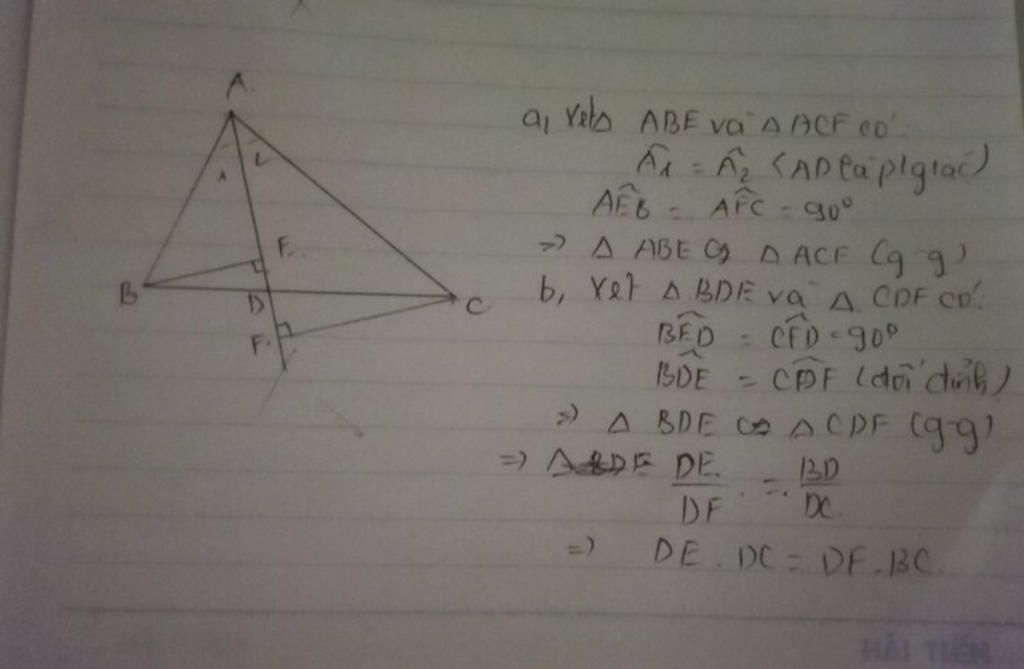 A.
1 2
E.
B D C.
F.
a, Xét Δ ABE và Δ ACF có:
Â1 = Â2 (AD là p/giác)
AÊB = AF̂C = 90°
=> Δ ABE ∽ Δ ACF (g-g)
b, Xét Δ BDE và Δ CDF có:
BÊD = CF̂D = 90°
BD̂E = CD̂F (đối đỉnh)
=> Δ BDE ∽ Δ CDF (g-g)
=> DE/DF = BD/DC
=> DE . DC = DF . BC.
HẢI TIẾN